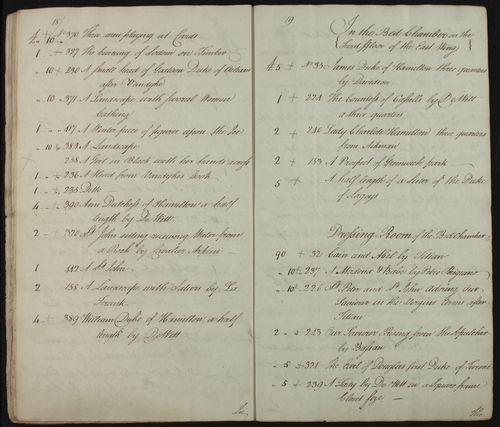 18
4 - 10 - No 370 Three men playing at Cards
1 - + 327 The burning of Sodom on Timber
- 10 + 230 A Small head of Gaston Duke of Orleans
after Vandyke
- 10 - 371 A Landscape with several Women
Bathing
1 - - 417 A Winter piece of figures upon the Ice
- 10 + 384 A Landscape
238 A Girl in Black with her hands across
1 - + 236 A Head from Vandykes book
1 - + 235 Ditto
4 - + 390 Ann Dutchess of Hamilton a half
length by De Witt
2 - + 320 St. John sitting receiving Water from
a Rock by
1 412 A St. John
2 135 A Landscape with Action by La
4 - + 389 William Duke of Hamilton a half
length by De Witt
In
19
In the Bed Chamber on the
third floor of the East Wing
£ 5 + No 33 James Duke of Hamilton three quarters
by Davidson
1 + 224 The Countess of Cassells by De Witt
a three quarters
2 + 240 Lady Charlote Hamilton three quarters
from Aikman
2 + 153 A Prospect of Greenwich park
5 + A half length of a Sister of the Duke
of
Dressing Room of the Bed Chamber
90 + 321 Cain and Abel by Titian
- 10 + 237 A Madona & Babe by Peter
- 10 + 226 St. Peter and St. John adoring Our
Saviour in the Virgins Arms after
Titian
2 - + 243 Our Saviour Rising from the Sepulcher
by Bassan
- 5 + 321 The Earl of Douglas first Duke of
- 5 + 239 A Lady by De Witt in a Square frame
Closet size -